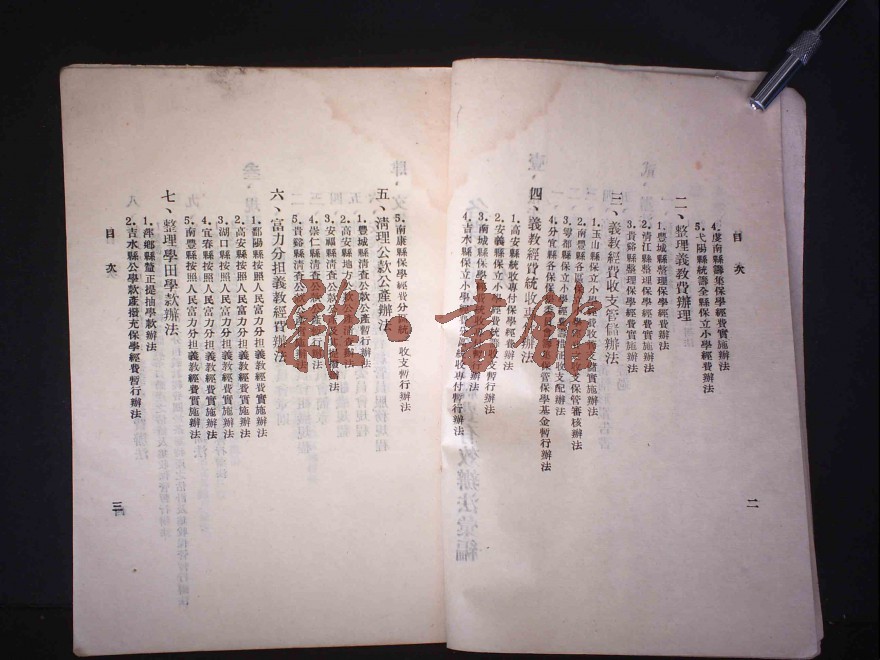 目次
4. 虔南縣籌集保學經費實施辦法
5. 弋陽縣統籌全縣保立小學經費辦法
二、整理義教費辦理
1. 豐城縣整理保學經費辦法
2. 清江縣整理保學經費辦法
3. 貴谿縣整理保學經費實施辦法
三、義教經費收支管個辦法
1. 玉山縣保立小學經費收
實施辦法
2. 南豐縣各區
收支保管審核辦法
3. 雩都縣保立小學經
收支配辦法
4. 分宜縣各保保
保管保學基金暫行辦法
四、義教經費統收專
辦法
1. 高安縣統收專付保學經費辦法
2. 安義縣保立小
經費統籌收支辦法
3. 南城縣保學經費統
辦法
4. 吉水縣保立小學
經收專付暫行辦法
二
5. 南康縣保學經費分
統
收支暫行辦法
五、清理公款公產辦法
1. 豐城縣清查公款公產暫行辦法
2. 高安縣地方公款公
清查辦法
3. 安福縣清查公款公
辦法
4. 崇仁縣清查公款公
行辦法
5. 貴谿縣清查公款公產
實施辦法
六、富力分担義教經費辦法
1. 鄱陽縣按照人民富力分担義教經費實施辦法
2. 高安縣按照人民富力分担義教經費實施辦法
3. 湖口縣按照人民富力分担義教經費實施辦法
4. 宜春縣按照人民富力分担義教經費實施辦法
5. 南豐縣按照人民富力分担義教經費實施辦法
七、整理學田學款辦法
1. 萍鄉縣釐正提抽學款辦法
2. 吉水縣公學款產撥充保學經費暫行辦法
目次
三